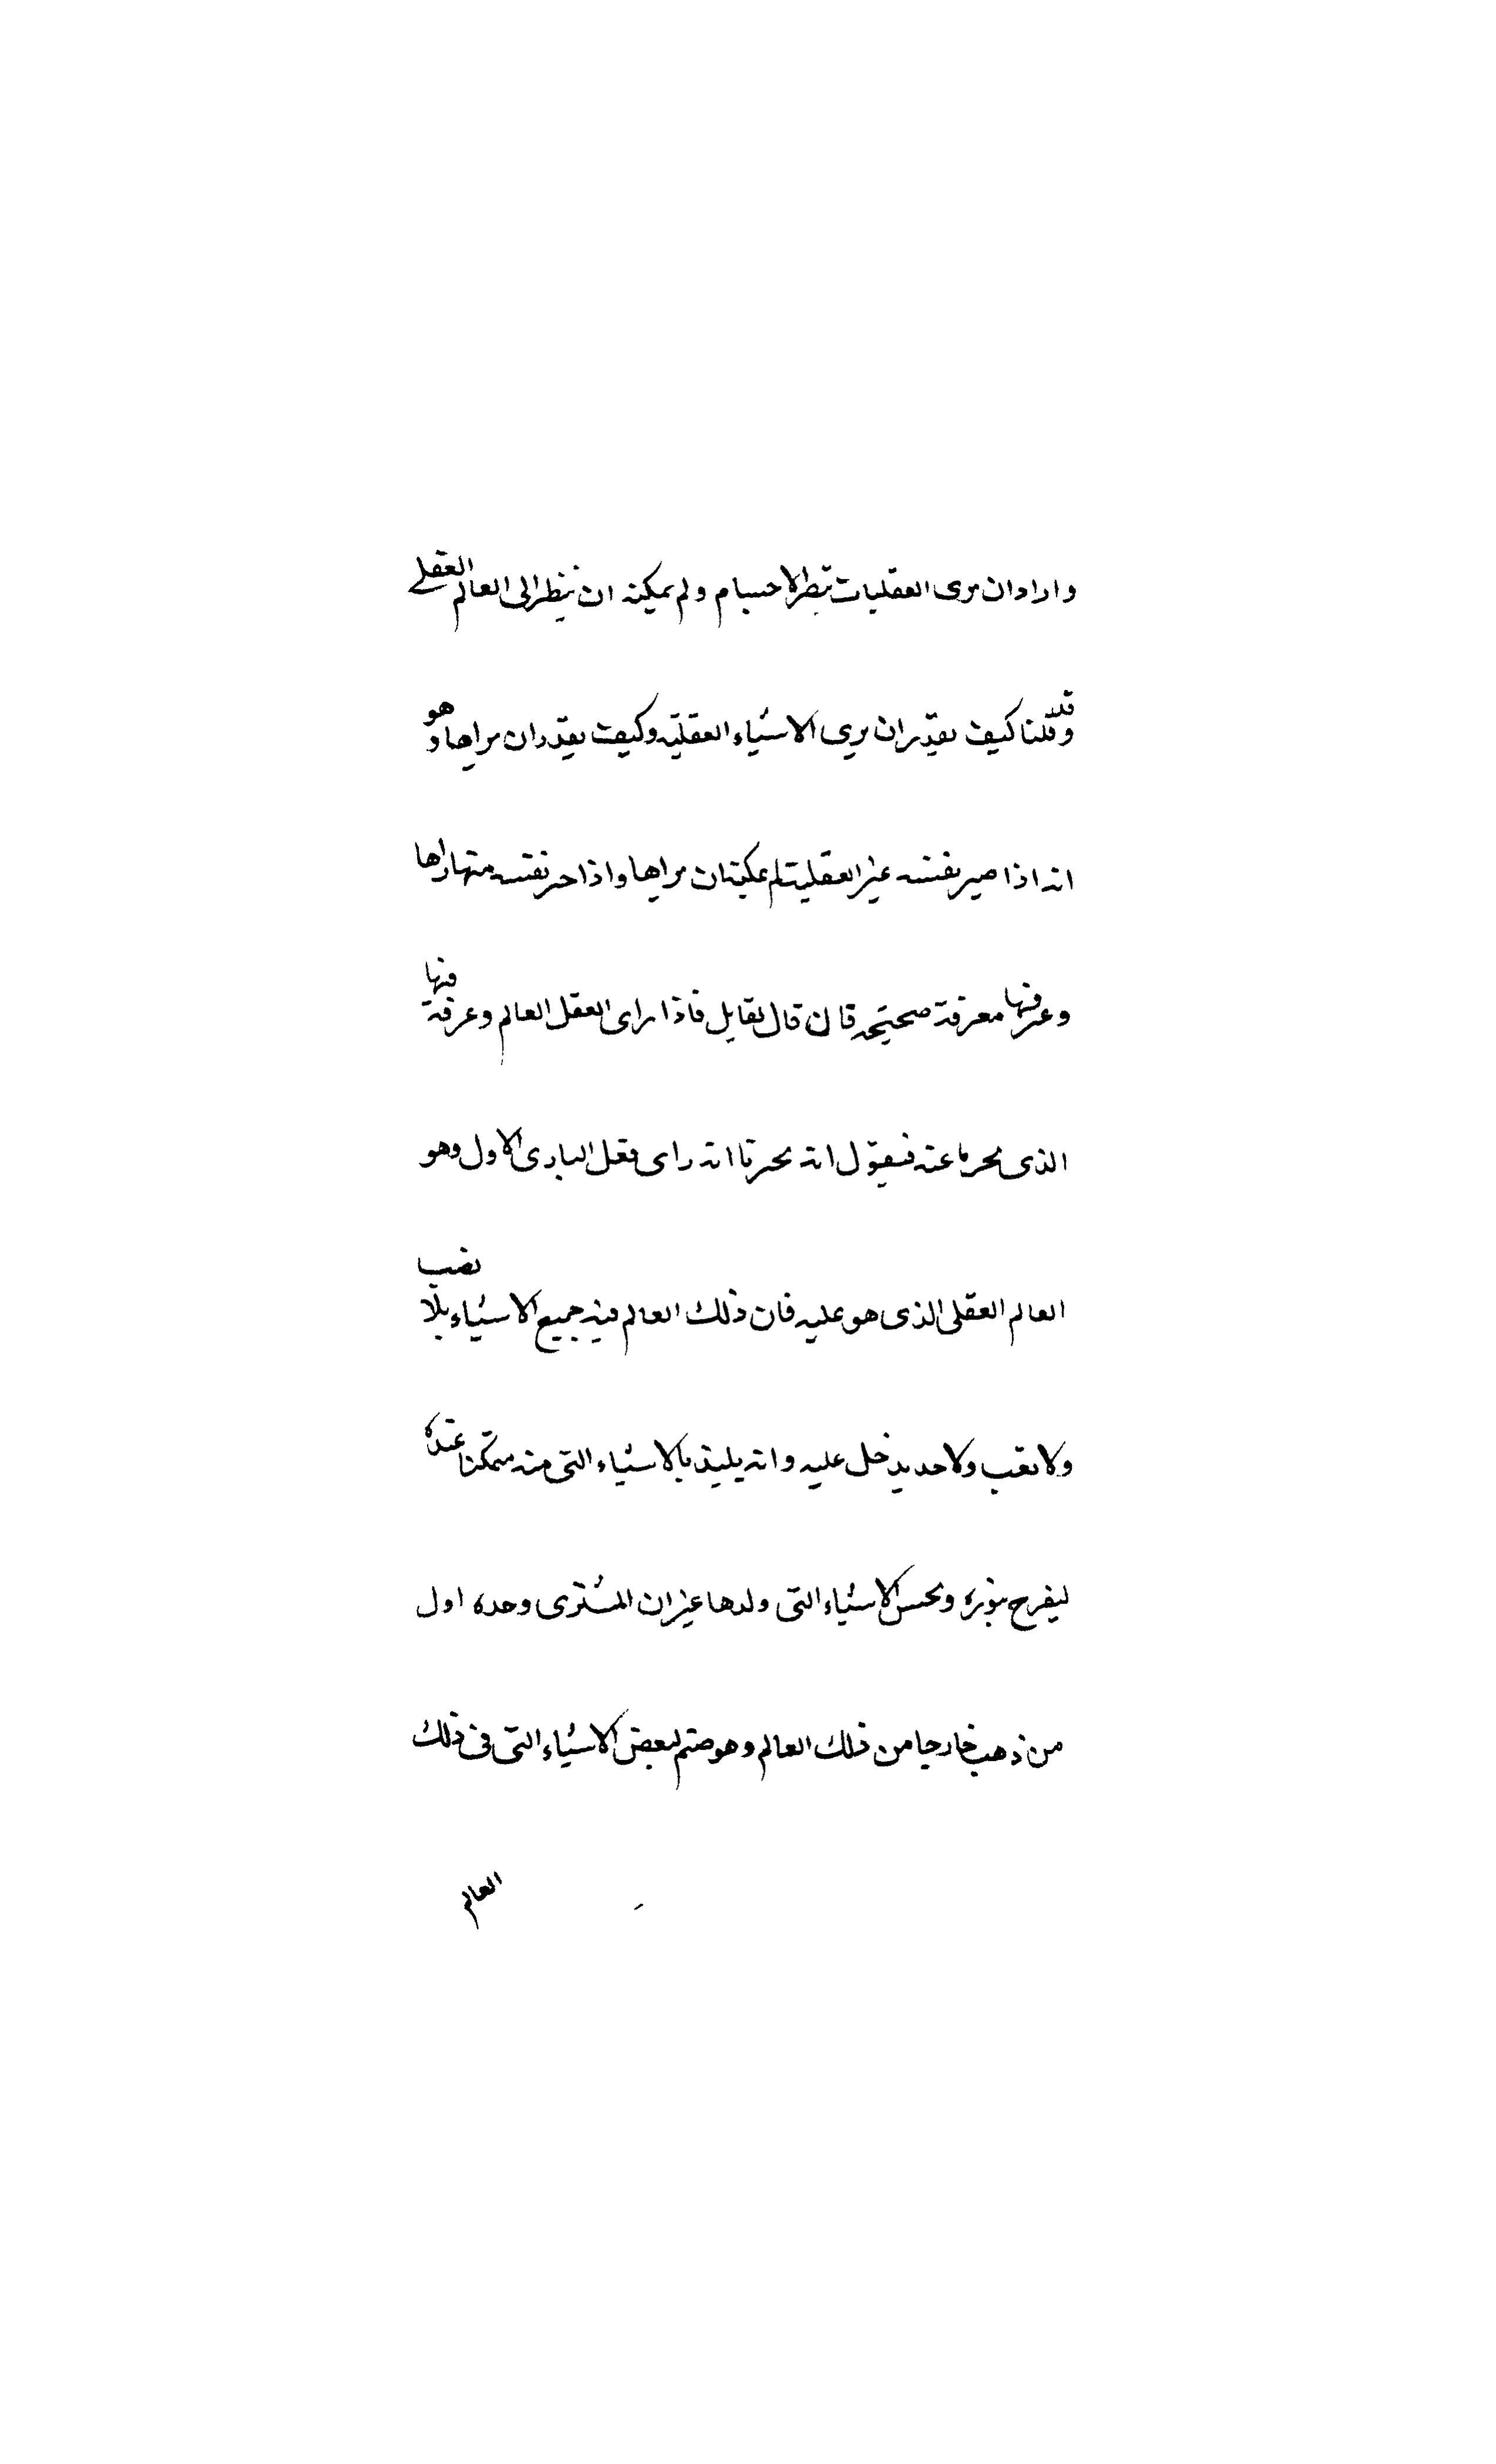 واراد ان يرى العقليات بنظر الاجسام ولم يمكنه ان ينظر الى العالم العقلي
وقد قلنا كيف يقدر ان يرى الاشياء العقلية وكيف يقدر ان يراها وهو
انه اذا صير نفسه غير العقلية لم يمكنه ان يراها واذا صير نفسه منها راها
وعرفها معرفة صحيحة فان قال قايل فاذا راى العقل العالم وعرفه فيها
الذى يخبرنا عنه فنقول انه يخبرنا انه راى فعل البارى الاول وهو
العالم العقلى الذى هو عليه فان ذلك العالم فيه جميع الاشياء بلا نصب
ولا تعب ولا حد يدخل عليه وانه يليذ بالاشياء التى منه متمكنا عنده
ليفرح بنوره وبحسن الاشياء التى ولدها غير ان المشترى وحده اول
من ذهب خارجا من ذلك العالم وهو صنم لبعض الاشياء التى فى ذلك
العالم